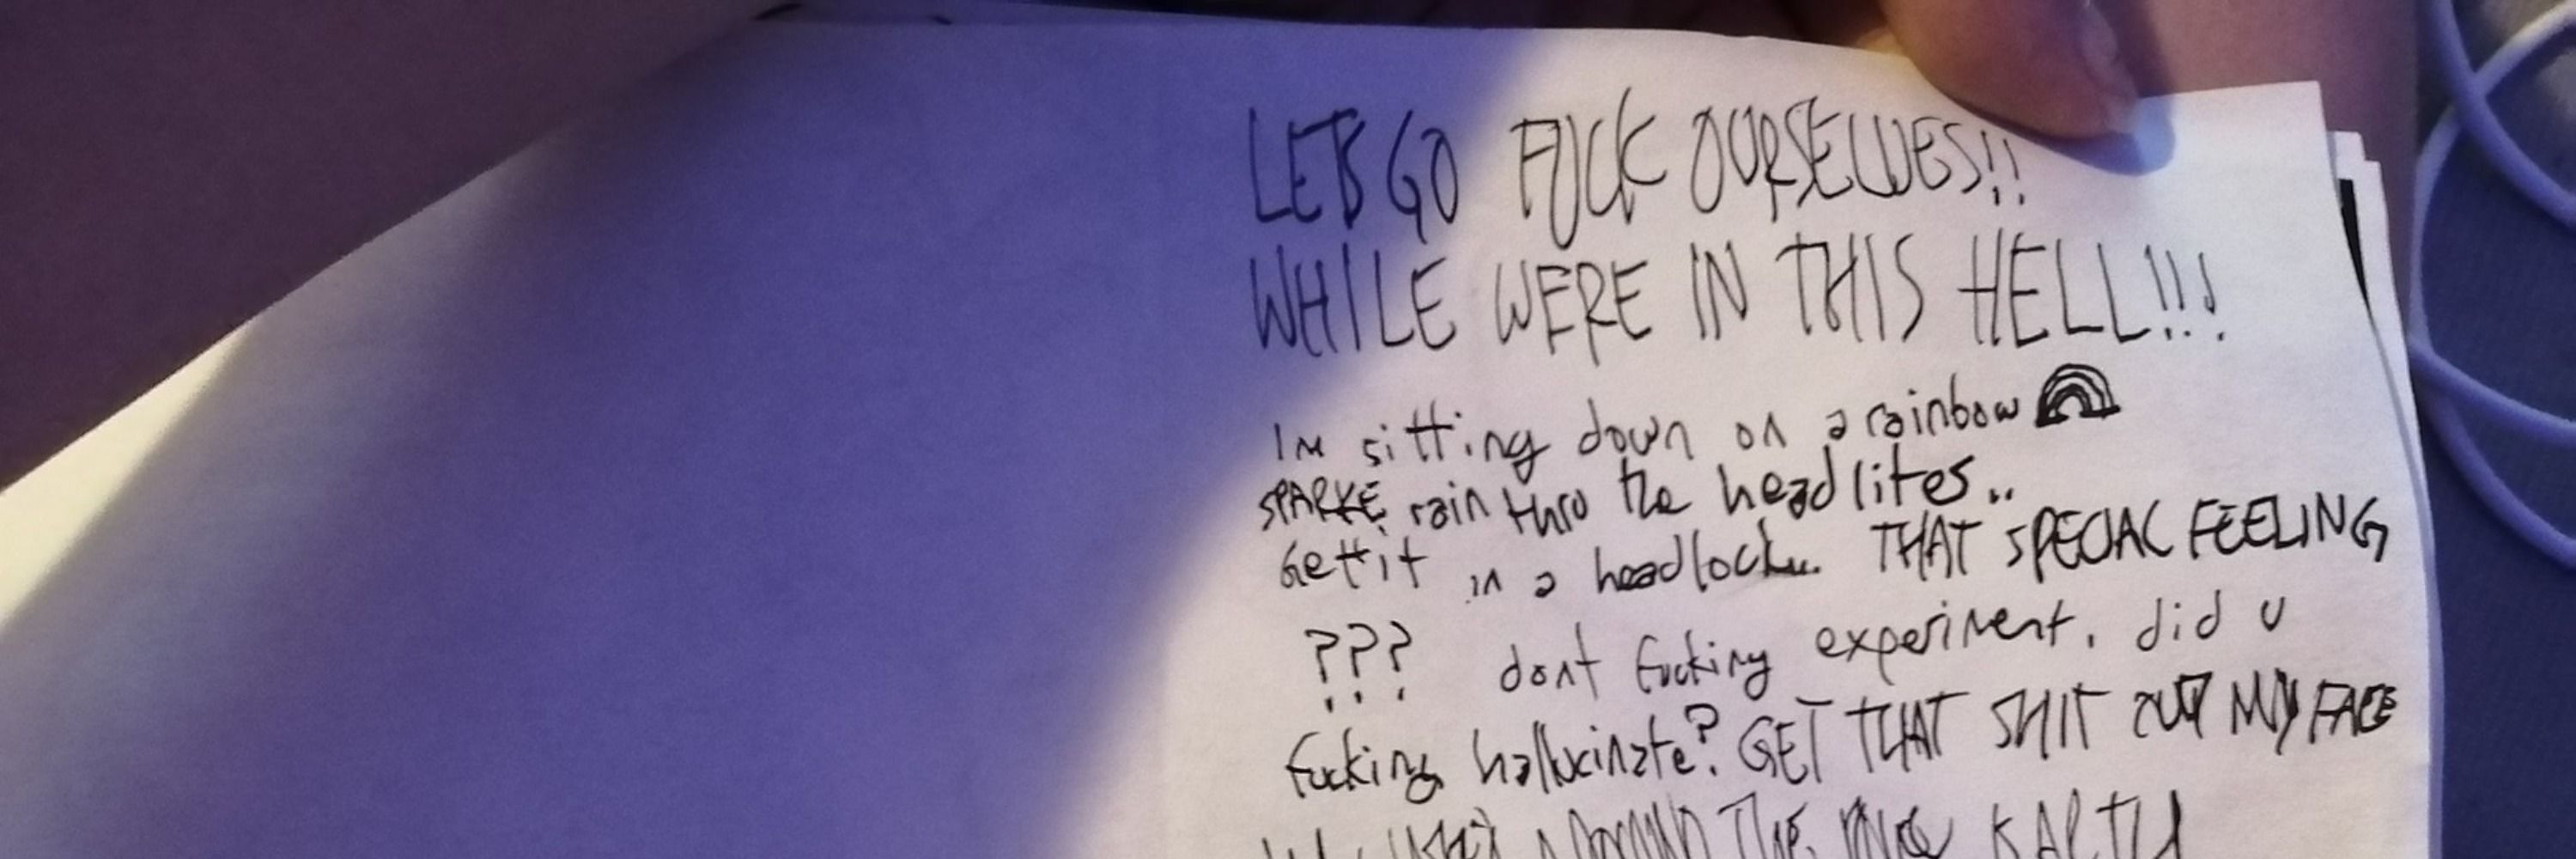 LETS GO FUCK OURSELVES!!
WHILE WERE IN THIS HELL!!!
Im sitting down on a rainbow
SPARKE rain thro the headlites..
Gettit in a headlock... THAT SPECIAL FEELING
??? dont fucking experiment. did u
fucking hallucinate? GET THAT SHIT OUT MY FACE
THE